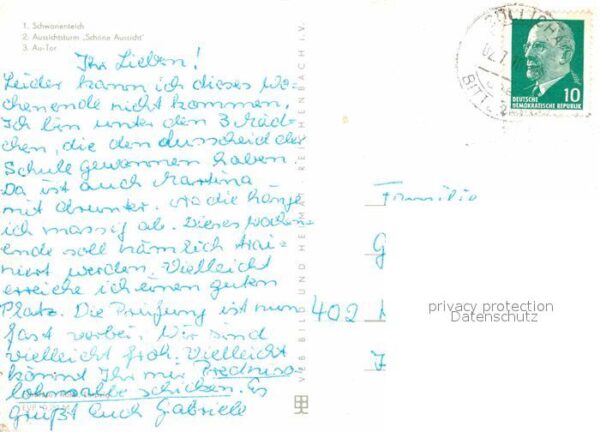 1. Schwanenteich
2. Aussichtsturm „Schöne Aussicht"
3. Au-Tor
Ihr Lieben!
Leider kann ich dieses Wo-
chenende nicht kommen.
Ich bin unter den 3 Mäd-
chen, die den Ausscheid der
Schule gewonnen haben.
Da ist auch Martina
mit darunter. die hänge
ich massig ab. Dieses Wochen-
ende soll nämlich trai-
niert werden. Vielleicht
erreiche ich einen guten
Platz. Die Prüfung ist nun
fast vorbei. Wir sind
vielleicht froh. Vielleicht
könnt Ihr mir Predniso-
lohnsalbe schicken. Es
grüßt Euch Gabriele
VEB BILD UND HEIMAT REICHENBACH I.V.
BITT
10
DEUTSCHE
DEMOKRATISCHE REPUBLIK
Familie
G
402
privacy protection
Datenschutz